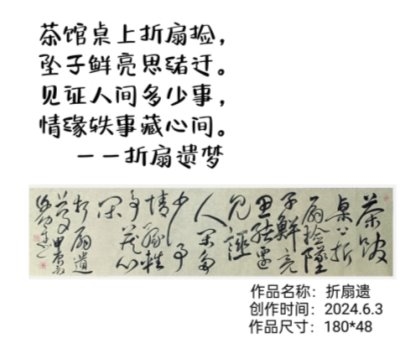 茶馆桌上折扇捡，
坠子鲜亮思绪迁。
见证人间多少事，
情缘轶事藏心间。
——折扇遗梦
茶馆
桌上折
扇捡墜
子鮮亮
思绪遷
见證
人间多
少事
情缘轶
事藏心
间
折扇遗
梦甲辰
作品名称：折扇遗
创作时间：2024.6.3
作品尺寸：180*48